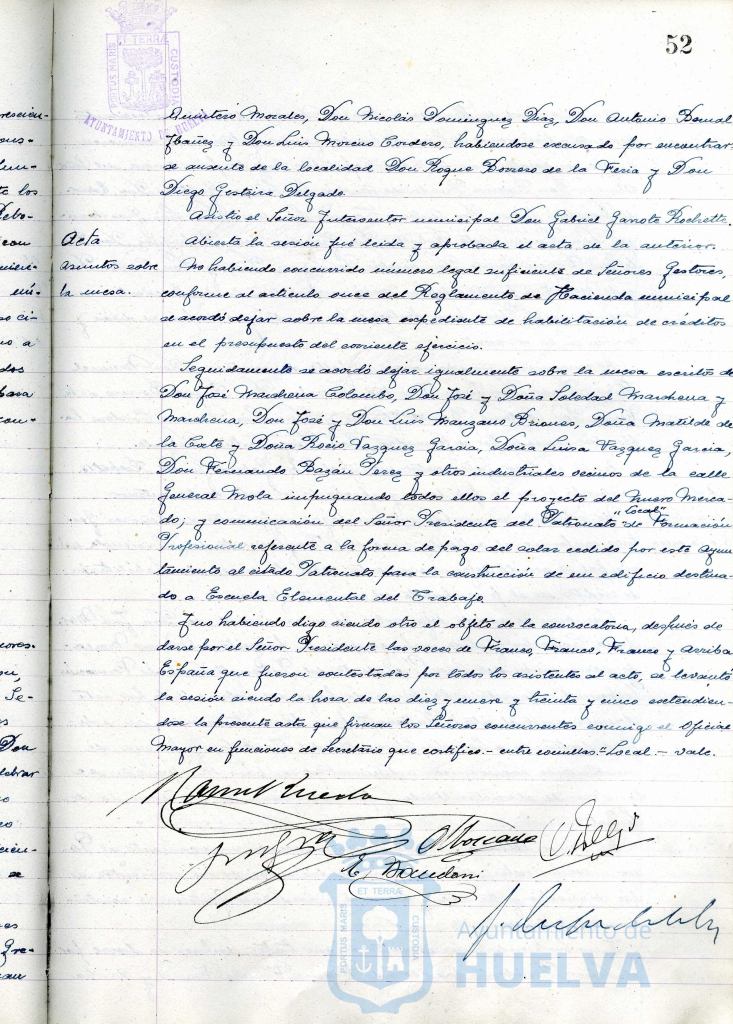 52
ET TERRÆ
PORTUS MARIS
CUSTODIA
AYUNTAMIENTO DE HUELVA
Quintero Morales, Don Nicolás Dominguez Diaz, Don Antonio Bernal
Ybañez y Don Luis Moreno Cordero, habiendose excusado por encontrar-
se ausente de la localidad Don Roque Borrero de la Feria y Don
Diego Gesteira Delgado.
Asistio el Señor Interventor municipal Don Gabriel Garrote Rochette.
Acta
Abierta la sesión fué leida y aprobada el acta de la anterior.
Asuntos sobre
la mesa.
No habiendo concurrido número legal suficiente de Señores Gestores,
conforme al articulo once del Reglamento de Hacienda municipal
se acordó dejar sobre la mesa expediente de habilitación de créditos
en el presupuesto del corriente ejercicio.
Seguidamente se acordó dejar igualmente sobre la mesa escritos de
Don José Marchena Colombo, Don José y Doña Soledad Marchena y
Marchena, Don José y Don Luis Manzano Briones, Doña Matilde de
la Corte y Doña Rocio Vazquez Garcia, Doña Luisa Vazquez Garcia,
Don Fernando Bazán Perez y otros industriales vecinos de la calle
General Mola impugnando todos ellos el proyecto del Nuevo Merca-
"Local"
do; y comunicación del Señor Presidente del Patronato de Formación
Profesional referente a la forma de pago del solar cedido por este Ayun-
tamiento al citado Patronato para la construcción de un edificio destina-
do a Escuela Elemental del Trabajo.
Y no habiendo digo siendo otro el objeto de la convocatoria, después de
darse por el Señor Presidente las voces de Franco, Franco, Franco y Arriba
España que fueron contestadas por todos los asistentes al acto, se levantó
la sesión siendo la hora de las diez y nueve y treinta y cinco extendien-
dose la presente acta que firman los Señores concurrentes conmigo el Oficial
Mayor en funciones de Secretario que certifico.- entre comillas.- Local.- vale.
ET TERRÆ
PORTUS MARIS
CUSTODIA
Ayuntamiento de
HUELVA